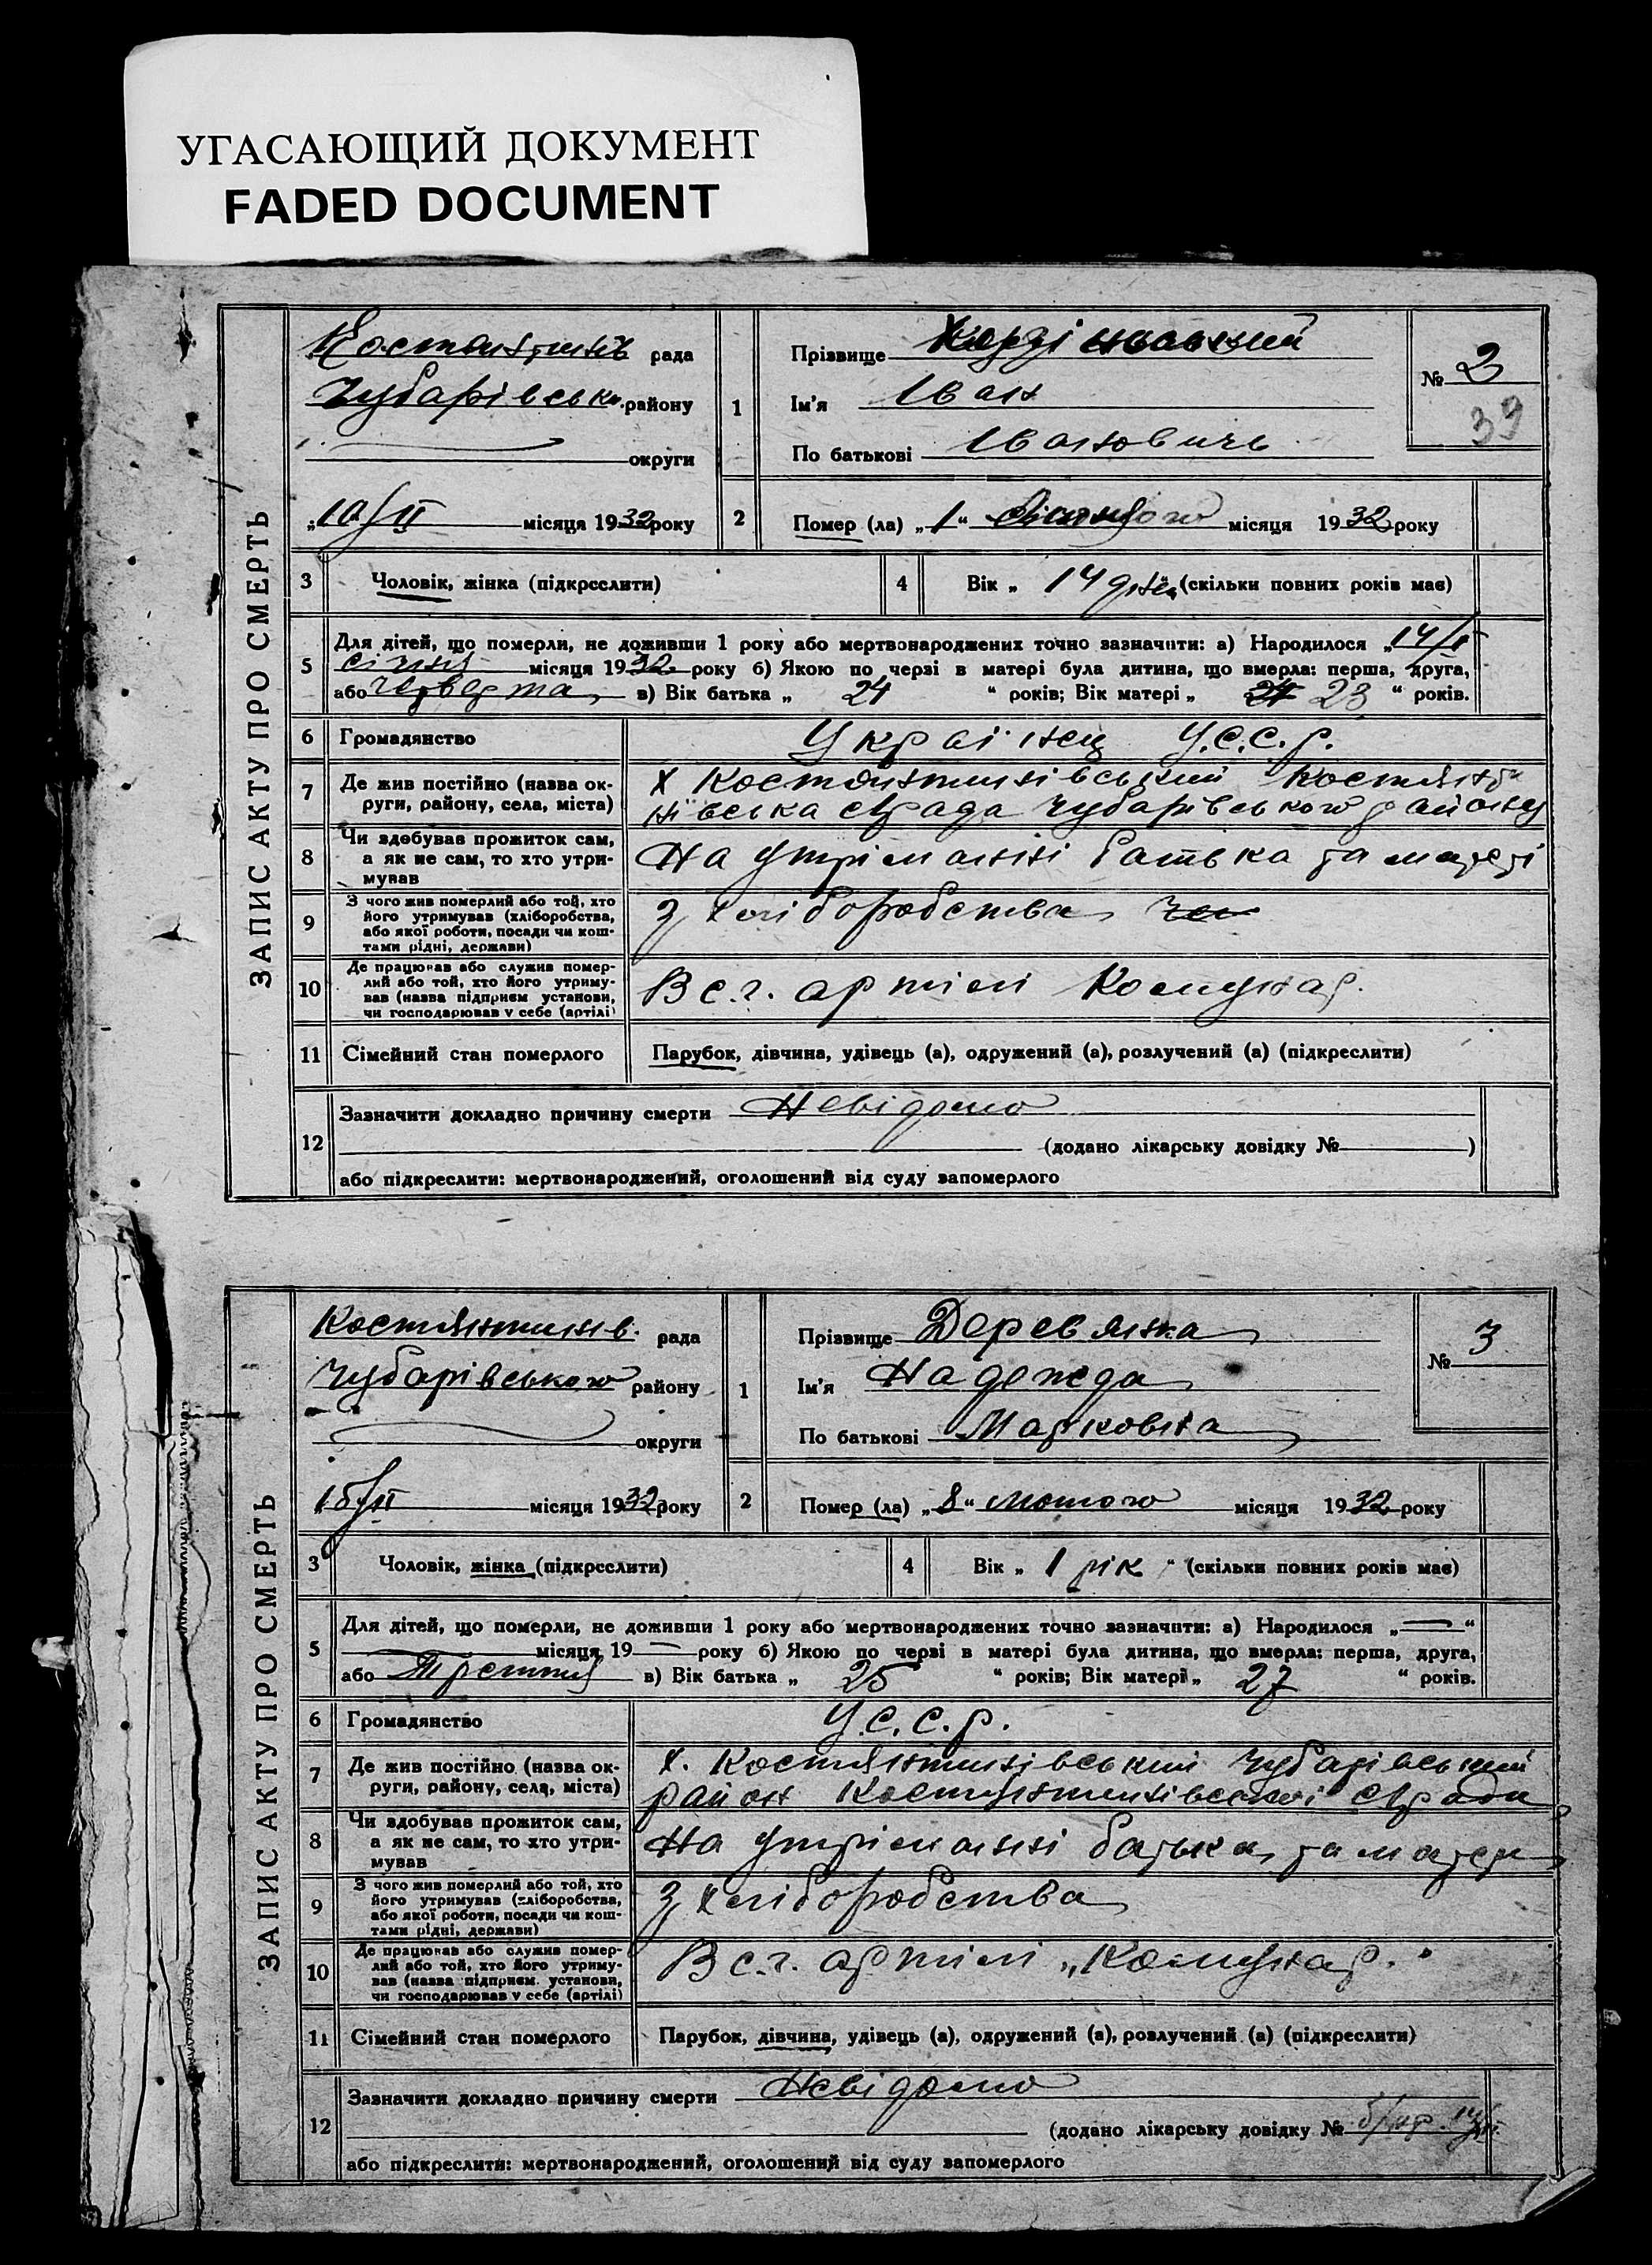 УГАСАЮЩИЙ ДОКУМЕНТ
FADED DOCUMENT
ЗАПИС АКТУ ПРО СМЕРТЬ
рада
Чубарівськ. району
округи
„10/II місяця 1932 року
1
Прізвище
Ім'я Іван
По батькові Івановичь
№ 2
39
2
Помер (ла) „1“ місяця 1932 року
3 Чоловік, жінка (підкреслити)
4 Вік „ 14 днєй (скільки повних років має)
5
Для дітей, що померли, не доживши 1 року або мертвонароджених точно зазначити: а) Народилося „14/I
січня місяця 1932 року б) Якою по черзі в матері була дитина, що вмерла: перша, друга,
або четверта в) Вік батька „ 24 “ років; Вік матері „ 23 “ років.
6 Громадянство
Украінец У.С.С.р.
7 Де жив постійно (назва ок-
руги, району, села, міста)
х Костянтинівський Костянти
нівська с/рада Чубарівського району
8 Чи здобував прожиток сам,
а як не сам, то хто утри-
мував
На утріманні батька та матері
9 З чого жив померлий або той, хто
його утримував (хліборобства,
або якої роботи, посади чи кош-
тами рідні, держави)
З хліборобства
10 Де працював або служив помер-
лий або той, хто його утриму-
вав (назва підприєм установи,
чи господарював у себе (артілі)
В с.г. артілі Комунар.
11 Сімейний стан померлого
Парубок, дівчина, удівець (а), одружений (а), розлучений (а) (підкреслити)
12
Зазначити докладно причину смерти Невідомо
(додано лікарську довідку № )
або підкреслити: мертвонароджений, оголошений від суду запомерлого
ЗАПИС АКТУ ПРО СМЕРТЬ
Костянтинів. рада
Чубарівського району
округи
місяця 1932 року
1
Прізвище Деревянка
Ім'я Надежда
По батькові Марковна
№ 3
2
Помер (ла) „8“ лютого місяця 1932 року
3 Чоловік, жінка (підкреслити)
4 Вік „ 1 рік “ (скільки повних років має)
5
Для дітей, що померли, не доживши 1 року або мертвонароджених точно зазначити: а) Народилося „—“
місяця 19— року б) Якою по черзі в матері була дитина, що вмерла: перша, друга,
або в) Вік батька „ 25 “ років; Вік матері „ 27 “ років.
6 Громадянство
У.С.С.р.
7 Де жив постійно (назва ок-
руги, району, села, міста)
х. Костянтинівський Чубарівський
район Костянтинівської с/ради
8 Чи здобував прожиток сам,
а як не сам, то хто утри-
мував
На утріманні батька та матери
9 З чого жив померлий або той, хто
його утримував (хліборобства,
або якої роботи, посади чи кош-
тами рідні, держави)
З хліборобства
10 Де працював або служив помер-
лий або той, хто його утриму-
вав (назва підприєм. установи,
чи господарював у себе (артілі)
В с.г. артілі „Комунар."
11 Сімейний стан померлого
Парубок, дівчина, удівець (а), одружений (а), розлучений (а) (підкреслити)
12
Зазначити докладно причину смерти Невідомо
(додано лікарську довідку №
або підкреслити: мертвонароджений, оголошений від суду запомерлого